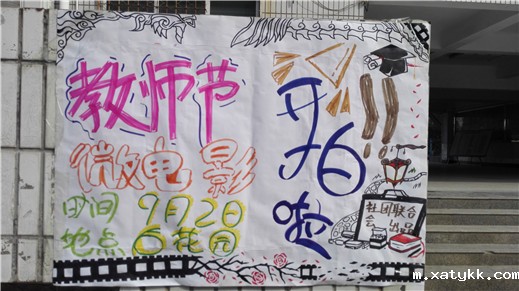 教师节
微电影
时间 9月2日
地点 白花园
开拍啦!!!
社团联合
会 出品
m.xatykk.com